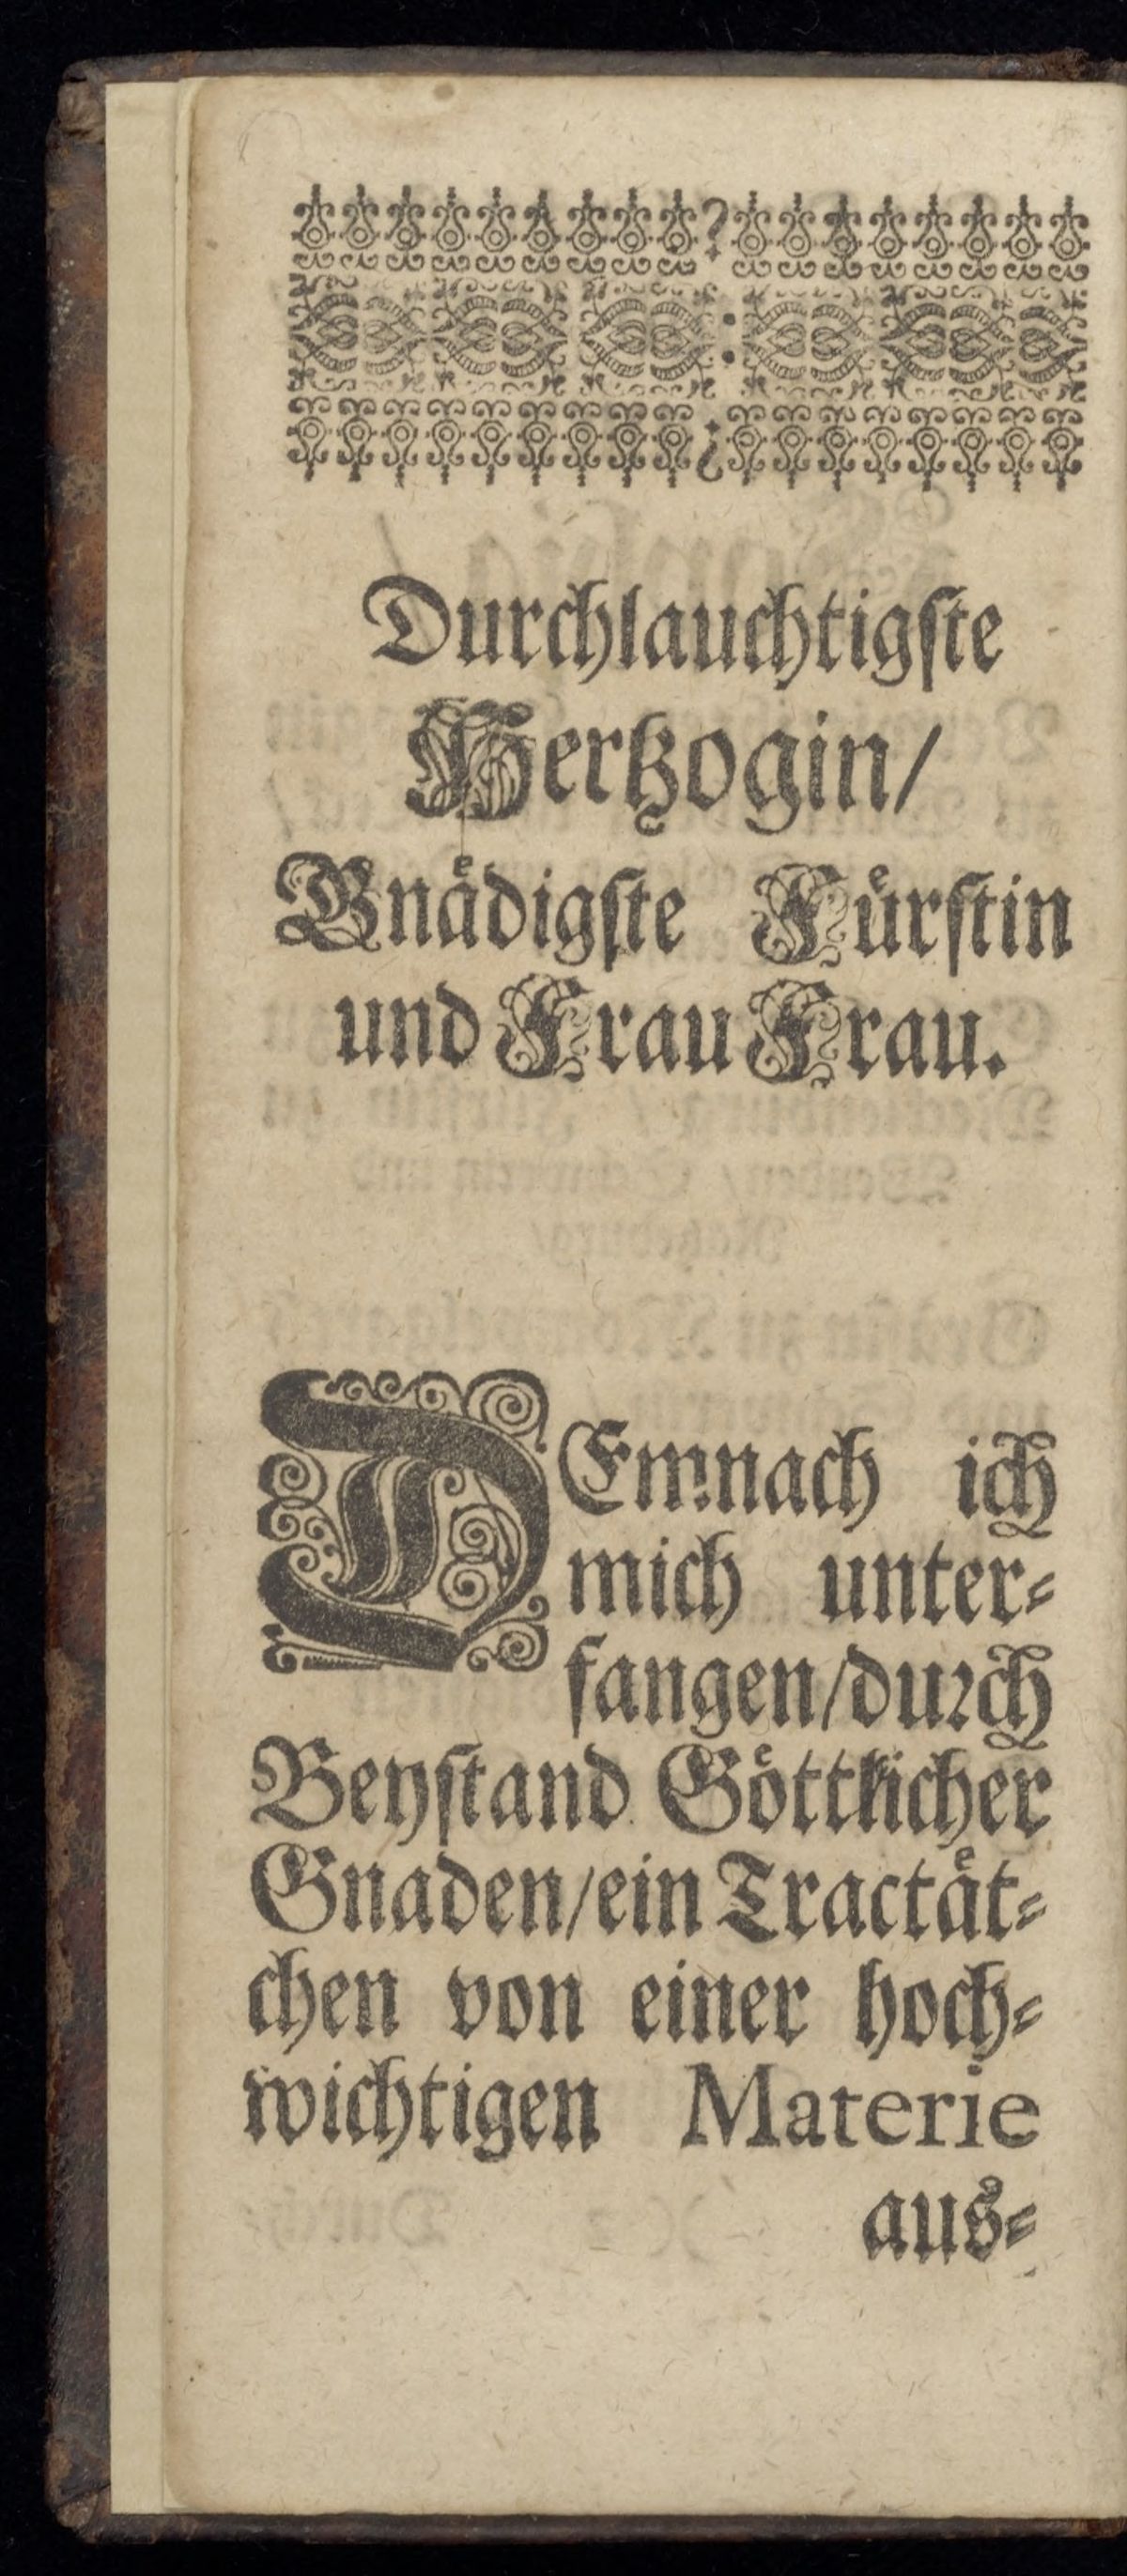 Durchlauchtigſte
Hertzogin/
Gnaͤdigſte Fuͤrſtin
und Frau Frau.
DEmnach ich
mich unter⸗
fangen/durch
Beyſtand Goͤttlicher
Gnaden/ein Tractaͤt⸗
chen von einer hoch⸗
wichtigen Materie
aus⸗